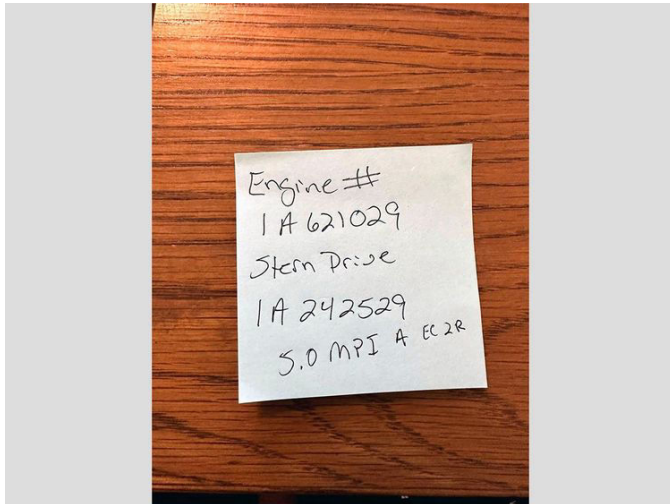 Engine #
1A621029
Stern Drive
1A242529
5.0 MPI A EC2R